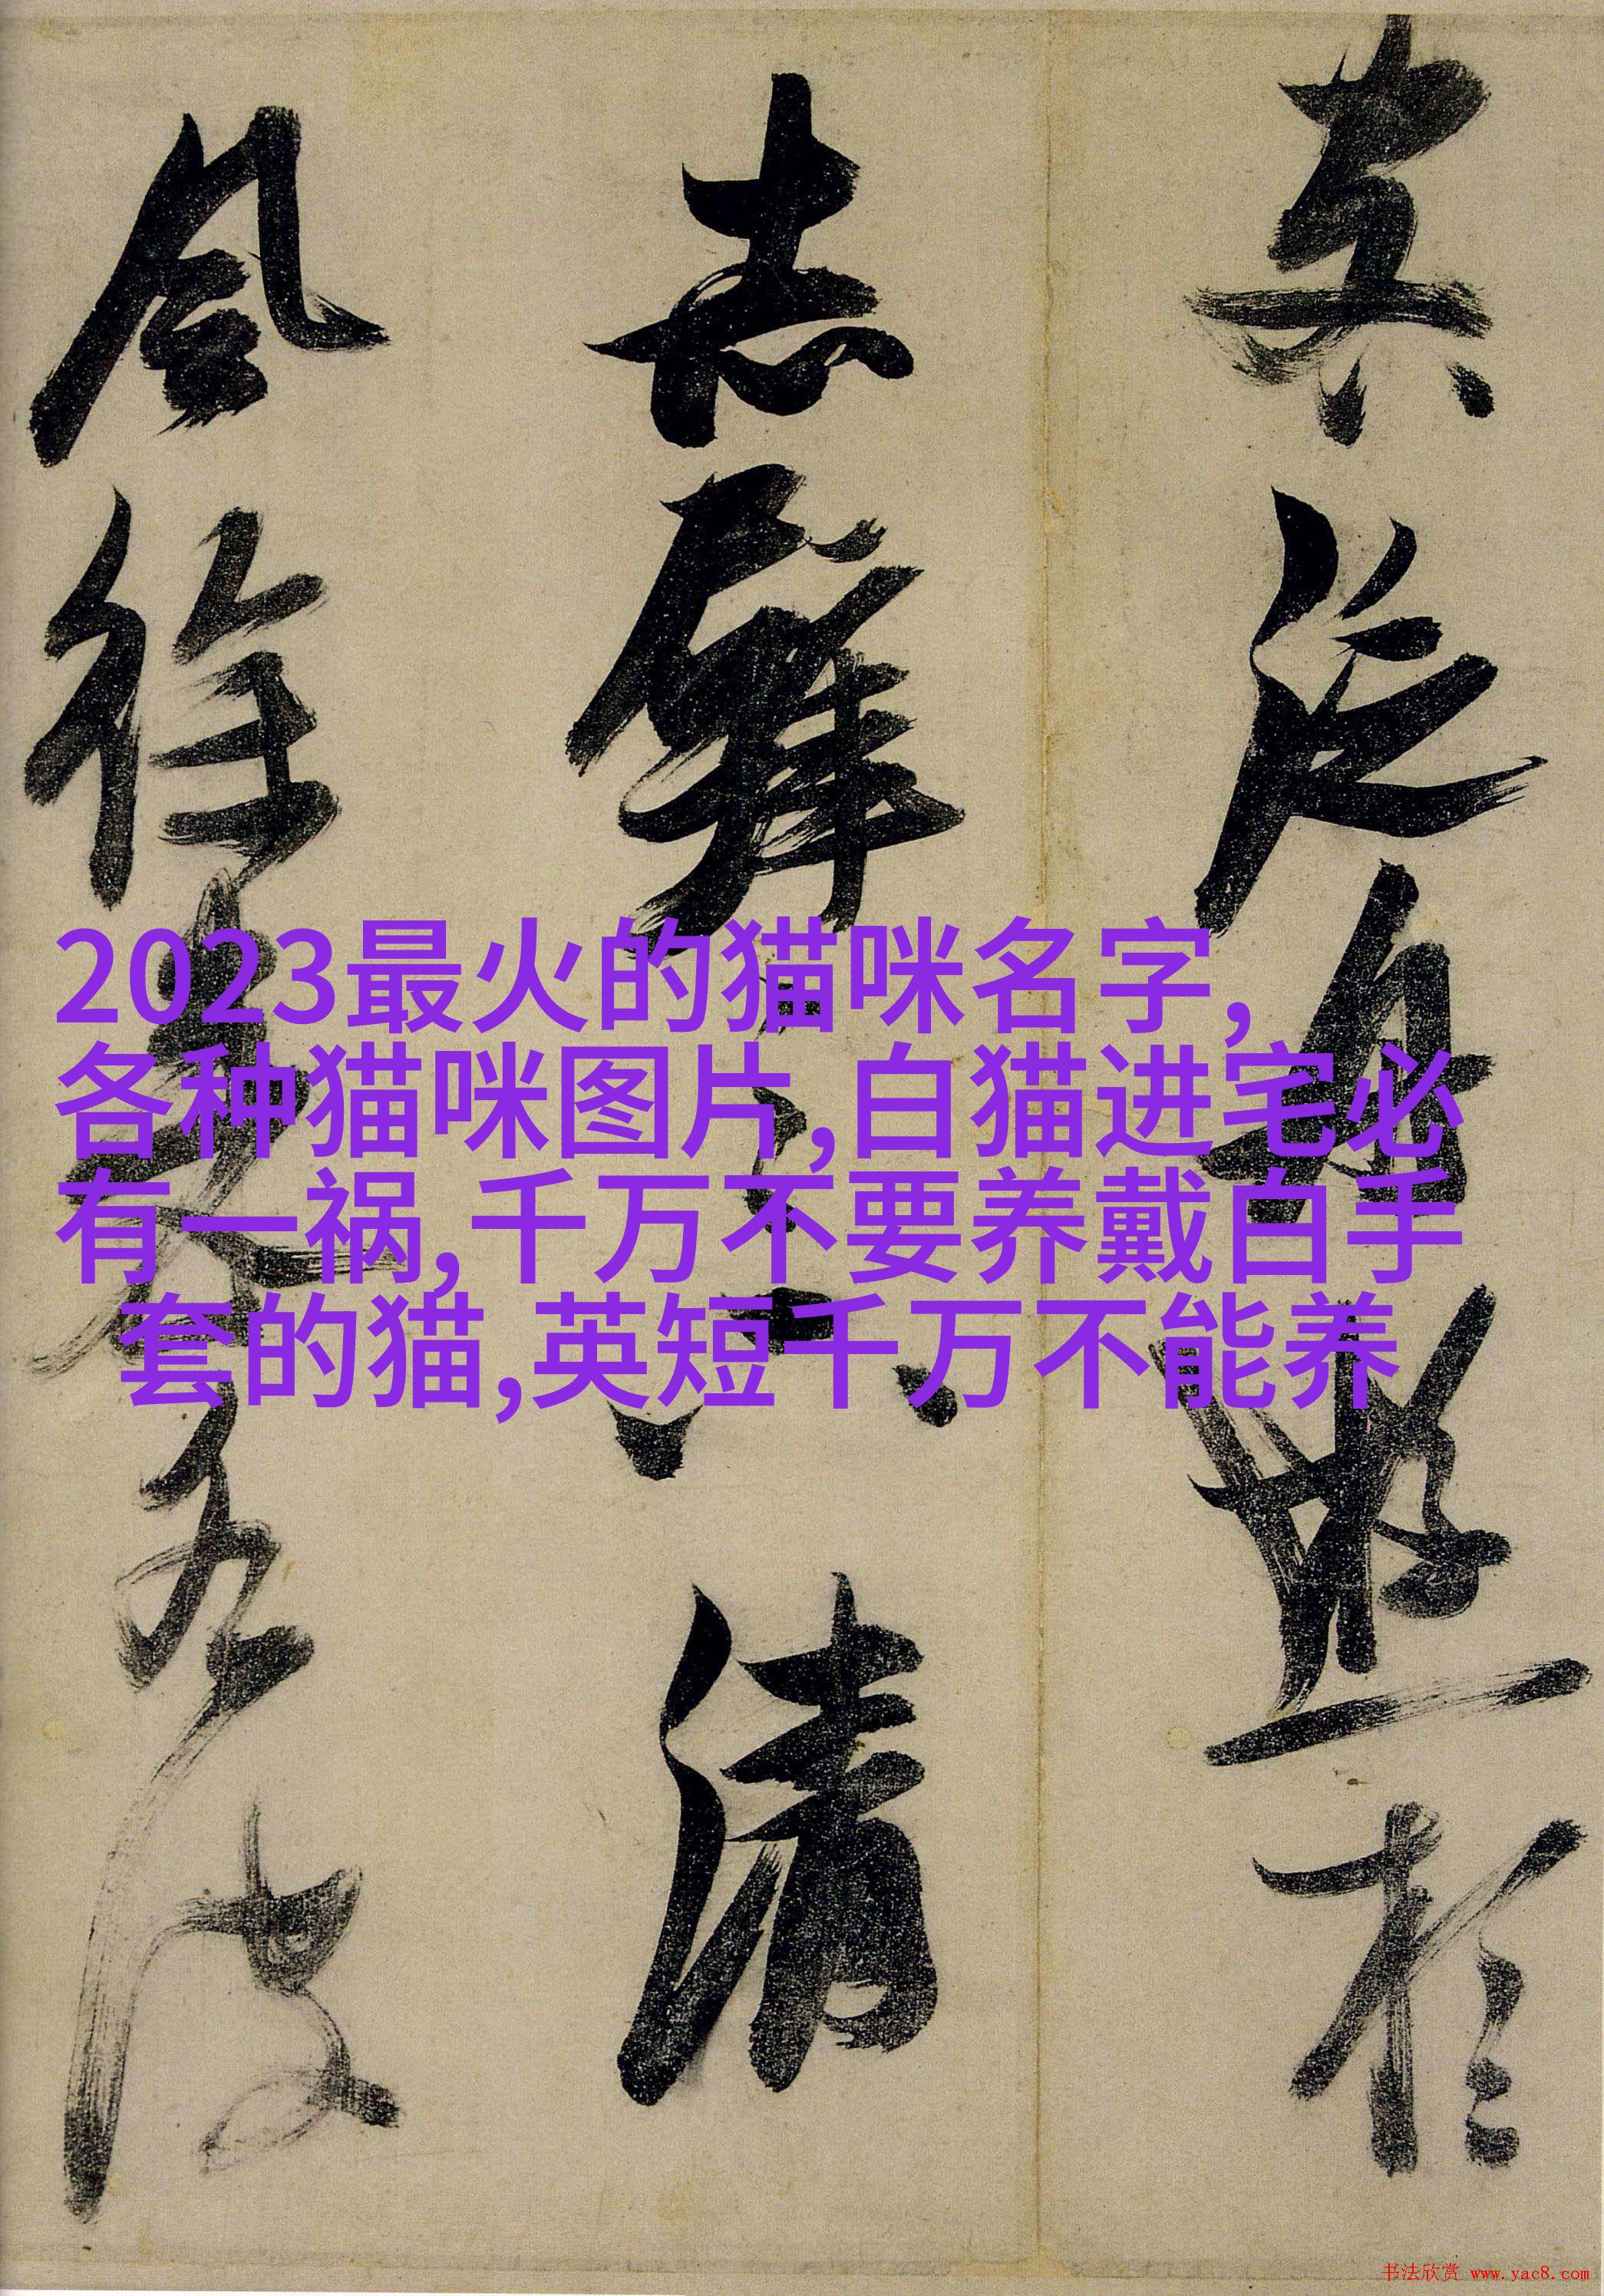 2023最火的猫咪名字,
各种猫咪图片,白猫进宅必
有一祸,千万不要养戴白手
套的猫,英短千万不能养
泛舟遊於
赤壁之下清
風徐來水波
书法欣赏 www.yac8.com